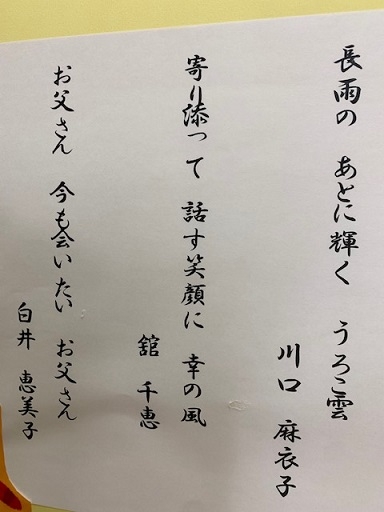 長雨の　あとに輝く　うろこ雲
川口　麻衣子
寄り添って　話す笑顔に　幸の風
舘　千恵
お父さん　今も会いたい　お父さん
白井　恵美子